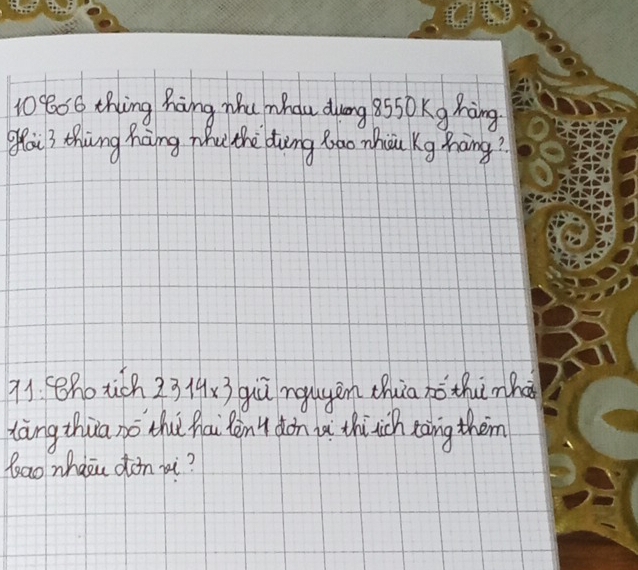 10 Có 6 thùng hàng như nhau đựng 8550 Kg hàng.
Hỏi 3 thùng hàng như thế đựng bao nhiêu Kg hàng?
11. Cho tích 2314 x 3 giữ nguyên thừa số thứ nhất
tăng thừa số thứ hai lên 4 đơn vị thì tích tăng thêm
bao nhiêu đơn vị?